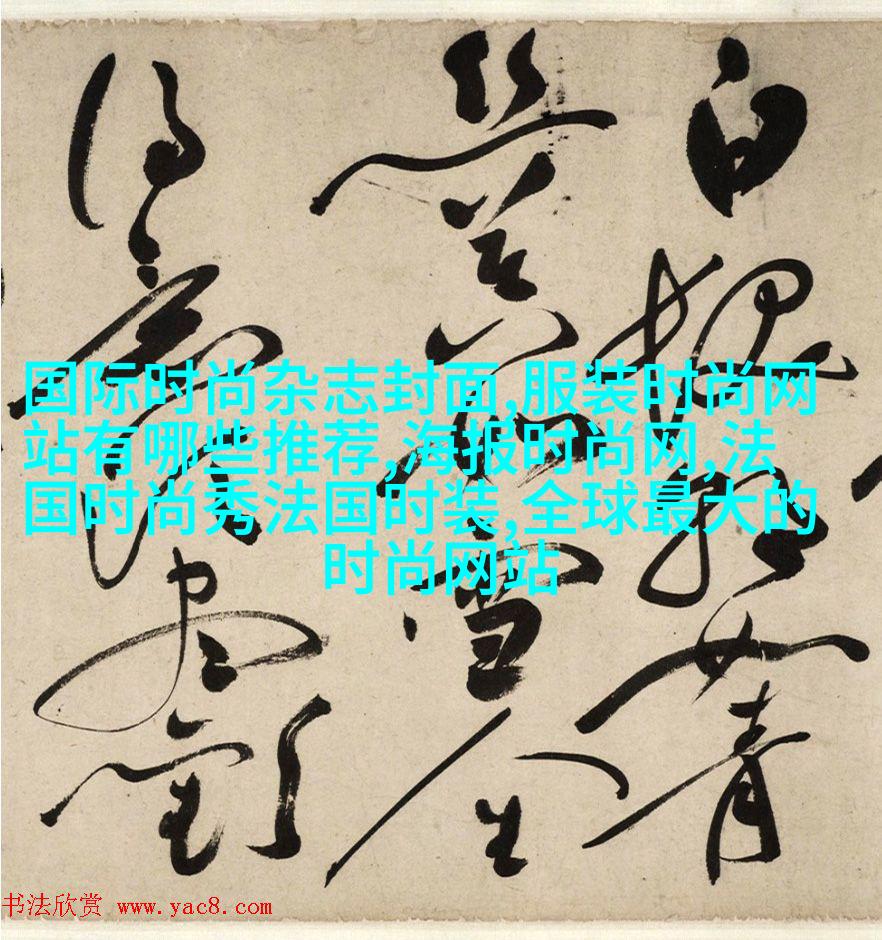 国际时尚杂志封面,服装时尚网
站有哪些推荐,海报时尚网,法
国时尚秀法国时装,全球最大的
时尚网站
如青
雪人生
得意須盡歡
书法欣赏 www.yac8.com